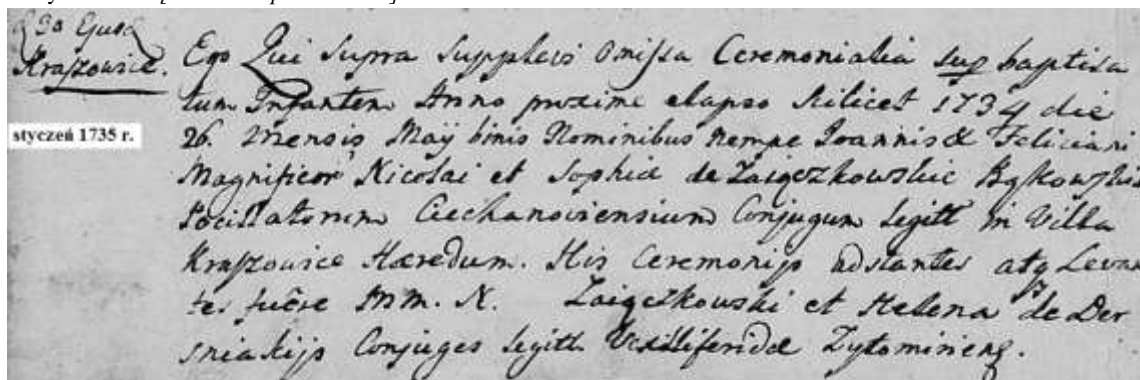 30 Ejusd
Kraszowice.
styczeń 1735 r.
Ego Qui Supra Supplevi Omissa Ceremonialia sup baptisa
tum Infantem Anno proxime elapso scilicet 1734 die
26. Mensis Maÿ binis Nominibus nempe Joannis & Feliciani
Magnificor Nicolai et Sophiæ de Zaięczkowskie Bąkowskie
Pocillatorum Ciechanoviensium Conjugum legitt in Villa
Kraszowice Hæredum. His Ceremonijs adstantes atq Levan
tes fuêre MM. N. Zaięczkowski et Helena de Der
sniakijs Conjuges legitt Vexilliferidæ Zytomiriens.